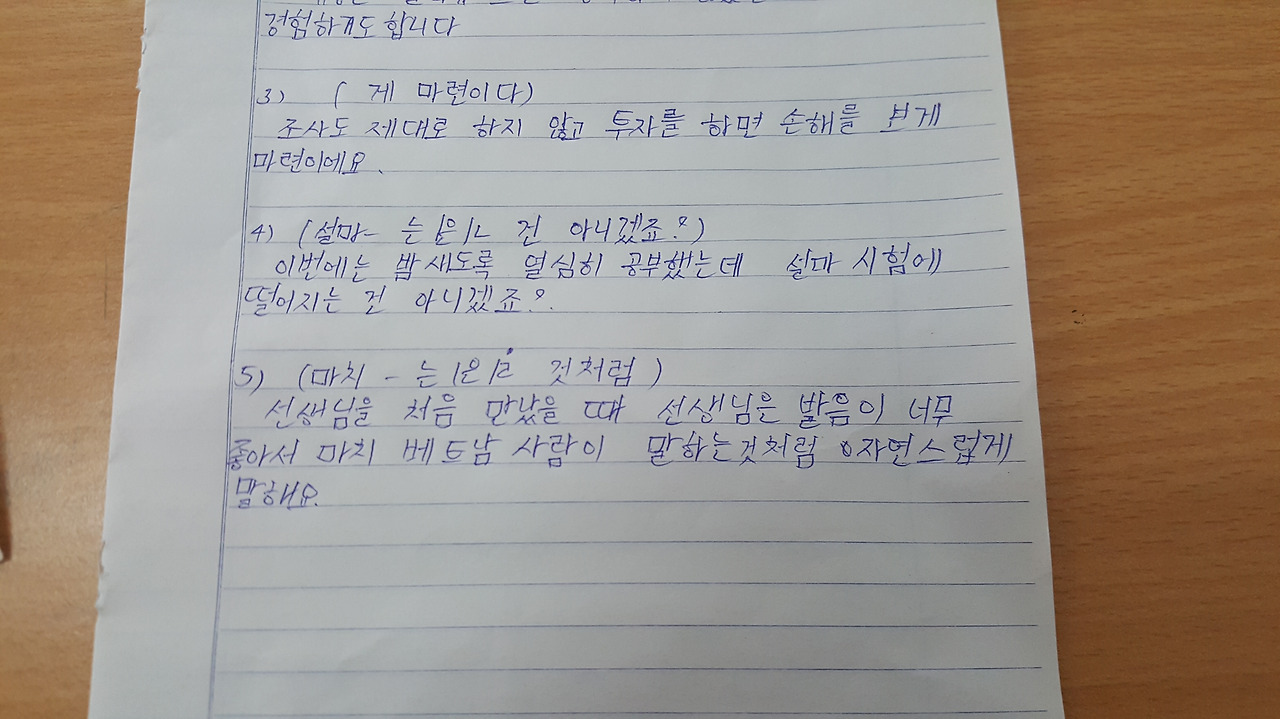 경험하기도합니다
3) ( 게 마련이다)
조사도 제대로 하지 않고 투자를 하면 손해를 보게
마련이에요.
4) (설마- 는/은/ㄴ 건 아니겠죠?)
이번에는 밤새도록 열심히 공부했는데 설마 시험에
떨어지는 건 아니겠죠?.
5) (마치 - 는/은/ㄹ 것처럼 )
선생님을 처음 만났을 때 선생님은 발음이 너무
좋아서 마치 베트남 사람이 말하는것처럼 자연스럽게
말해요.